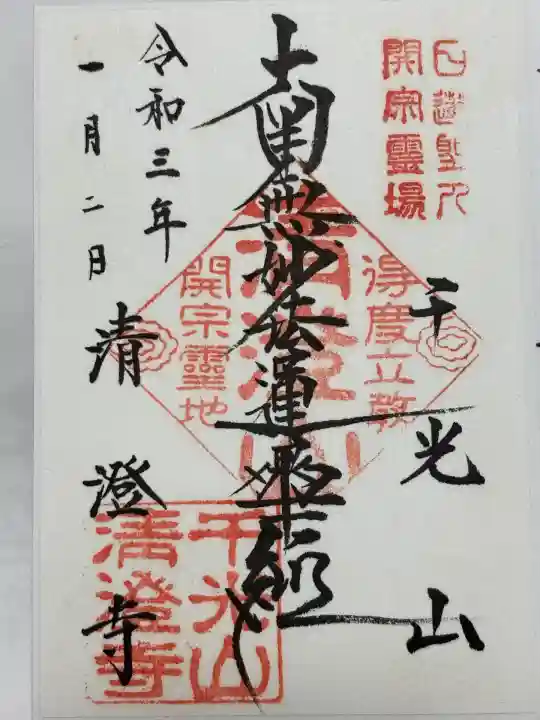 日蓮聖人
開宗霊場
千光山
得度立教
清澄山
開宗霊地
南無妙法蓮華経
令和三年
一月二日
清澄寺
千光山
清澄寺